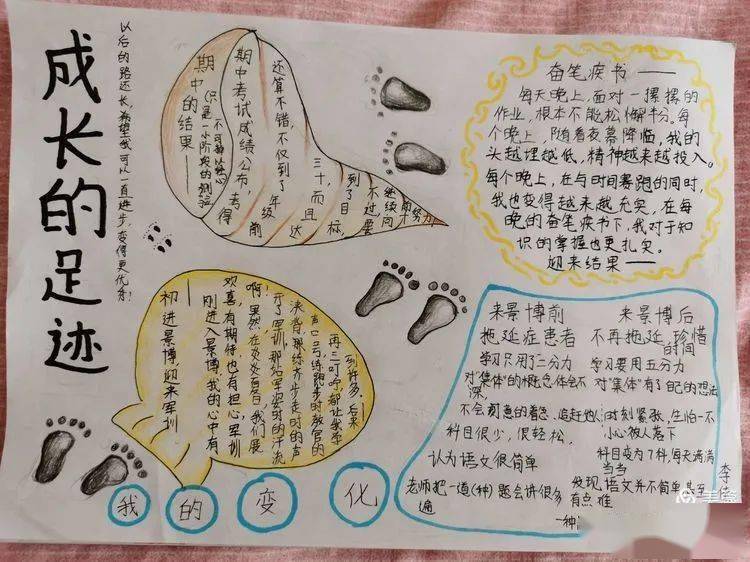 成长的足迹
以后的路还长，希望我可以一直进步，变得更优秀！
期中的结果——
（只是一小阶段的测验
不可掉以轻心
期中考试成绩公布，考得
还算不错，不仅到了年级前
三十，而且达
到了目标，
不过要
继续向
前努力
奋笔疾书——
每天晚上，面对一摞摞的
作业，根本不能松懈半分。每
个晚上，随着夜幕降临，我的
头越埋越低，精神越来越投入。
每个晚上，在与时间赛跑的同时，
我也变得越来越充实，在每
晚的奋笔疾书下，我对于知
识的掌握也更扎实。
迎来结果——
初进景博，迎来军训
刚进入景博，我的心中有
欢喜，有期待，也有担心，军训
啊，果然，在炎炎夏日，我们展
开了军训，那站军姿时的汗流
浃背，那练齐步走时的声
声口号，练跑步时教官的
再三叮咛都让我学
到许多，后来——
我的变化
来景博前
拖延症患者
学习只用了二分力
对“集体”的概念体会不
深，
科目很少，很轻松，
认为语文很简单
老师把一道(种)题会讲很多
遍
来景博后
不再拖延，珍惜
时间
学习要用五分力
对“集体”有了自己的想法
时刻紧张，生怕一不
小心被人落下
科目变为7科，每天满满
当当
发现，语文并不简单，甚至
有点难
一种
李佳